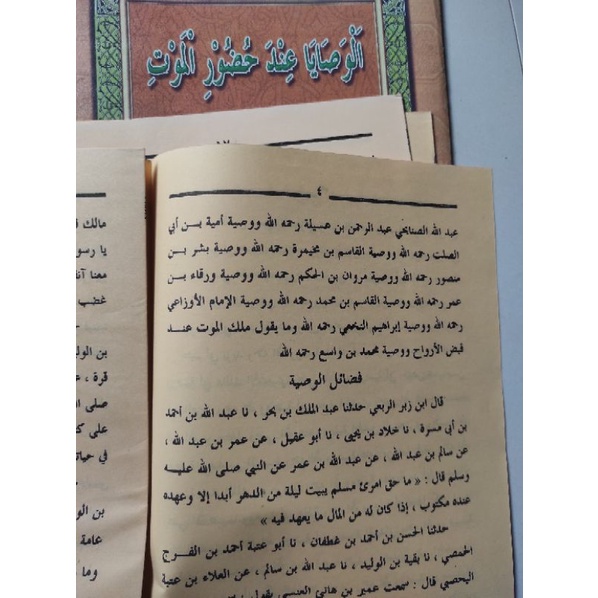 الْوَصَايَا عِنْدَ حُضُوْرِ الْمَوْتِ
٤
عبد الله الصنابحي عبد الرحمن بن عسيلة رحمه الله ووصية أمية بـن أبي
الصلت رحمه الله ووصية القاسم بن مخيمرة رحمه الله ووصية بشر بـن
منصور رحمه الله ووصية مروان بن الحكم رحمه الله ووصية ورقاء بـن
عمر رحمه الله ووصية القاسم بن محمد رحمه الله ووصية الإمام الأوزاعي
رحمه الله ووصية إبراهيم النخعي رحمه الله وما يقول ملك الموت عنـد
قبض الأرواح ووصية محمد بن واسع رحمه الله
فضائل الوصية
قال ابن زبر الربعي حدثنا عبد الملك بن بحر ، نا عبد الله بن أحمد
بن أبي مسرة ، نا خلاد بن يحيى ، نا أبو عقيل ، عن عمر بن عبد الله ،
عن سالم بن عبد الله ، عن عبد الله بن عمر عن النبي صلى الله عليـه
وسلم قال : « ما حق امرئ مسلم يبيت ليلة من الدهر أبدا إلا وعهده
عنده مكتوب ، إذا كان له من المال ما يعهد فيه »
حدثنا الحسن بن أحمد بن غطفان ، نا أبو عتبة أحمد بن الفـرج
الحمصي ، نا بقية بن الوليد ، نا عبد الله بن سالم ، عن العلاء بن عتبة
اليحصبي قال : سمعت عمير بن هانئ العنسي يقول :
مالك
يا رسو
معنا
غضب
بن الوليد
قرة ، ع
صلى ا
على
في حياتـ
بن الو
عامة
وما